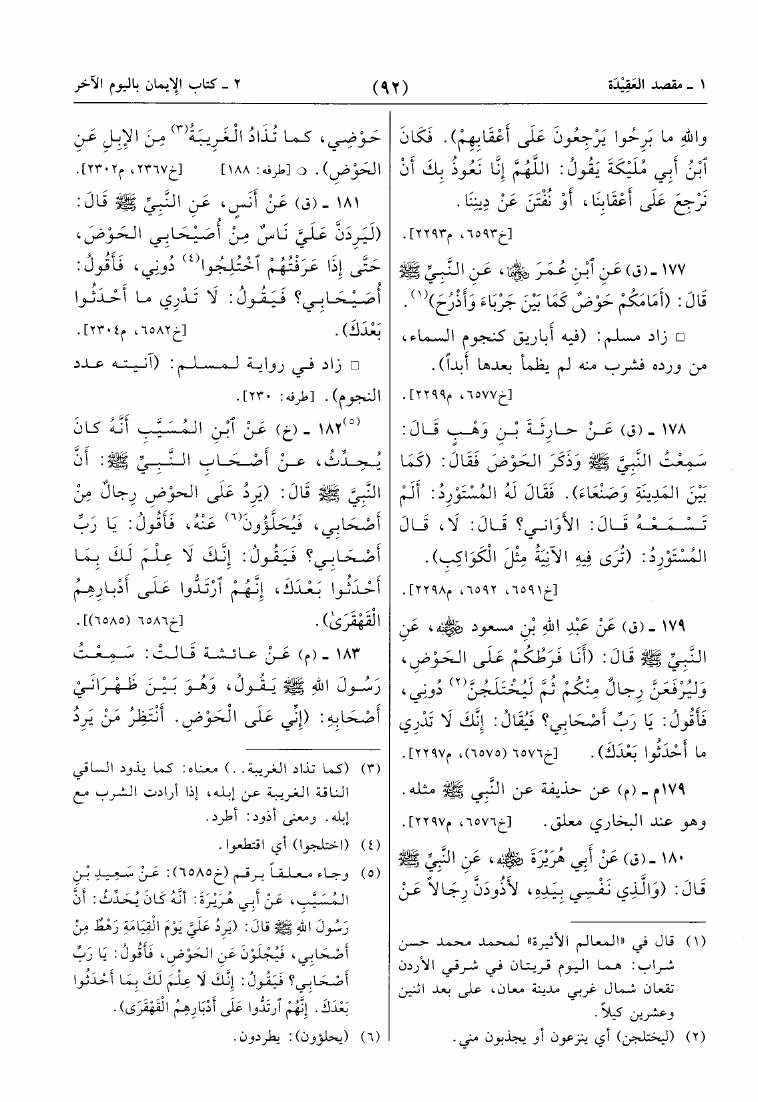 ١ ـ مقصد العَقِيْدَة
(٩٢)
٢ ـ كتاب الإيمان باليوم الآخر
واللهِ ما بَرِحُوا يَرْجِعُونَ عَلَى أَعْقَابِهِمْ). فَكَانَ
ٱبْنُ أَبِي مُلَيْكَةَ يَقُولُ: اللَّهُمَّ إِنَّا نَعُوذُ بِكَ أَنْ
نَرْجِعَ عَلَى أَعْقَابِنَا، أَوْ نُفْتَنَ عَنْ دِينِنَا.
[خ٦٥٩٣، م٢٢٩٣].
١٧٧ ـ (ق) عَنِ ٱبْنِ عُمَرَ ﵄، عَنِ النَّبِيِّ ﷺ
قَالَ: (أَمَامَكُمْ حَوْضٌ كَمَا بَيْنَ جَرْبَاءَ وَأَذْرُحَ)(١).
□ زاد مسلم: (فيه أباريق كنجوم السماء،
من ورده فشرب منه لم يظمأ بعدها أبداً).
[خ٦٥٧٧، م٢٢٩٩].
١٧٨ ـ (ق) عَنْ حارِثَةَ بْنِ وَهْبٍ قَالَ:
سَمِعْتُ النَّبِيَّ ﷺ وَذَكَرَ الحَوْضَ فَقَالَ: (كَمَا
بَيْنَ المَدِينَةِ وَصَنْعَاءَ). فَقَالَ لَهُ المُسْتَوْرِدُ: أَلَمْ
تَسْمَعْهُ قَالَ: الأَوَانِي؟ قَالَ: لَا، قَالَ
المُسْتَوْرِدُ: (تُرَى فِيهِ الآنِيَةُ مِثْلَ الْكَوَاكِبِ).
[خ٦٥٩١، ٦٥٩٢، م٢٢٩٨].
١٧٩ ـ (ق) عَنْ عَبْدِ اللهِ بْنِ مسعود ﵁، عَنِ
النَّبِيِّ ﷺ قَالَ: (أَنَا فَرَطُكُمْ عَلَى الحَوْضِ،
وَلَيُرْفَعَنَّ رِجالٌ مِنْكُمْ ثُمَّ لَيُخْتَلَجُنَّ(٢) دُونِي،
فَأَقُولُ: يَا رَبِّ أَصْحَابِي؟ فَيُقَالُ: إِنَّكَ لَا تَدْرِي
ما أَحْدَثُوا بَعْدَكَ). [خ٦٥٧٦ (٦٥٧٥)، م٢٢٩٧].
١٧٩م ـ (م) عن حذيفة عن النبي ﷺ مثله.
وهو عند البخاري معلق. [خ٦٥٧٦، م٢٢٩٧].
١٨٠ ـ (ق) عَنْ أَبِي هُرَيْرَةَ ﵁، عَنِ النَّبِيِّ ﷺ
قَالَ: (وَالَّذِي نَفْسِي بِيَدِهِ، لأَذُودَنَّ رِجَالاً عَنْ
(١) قال في «المعالم الأثيرة» لمحمد محمد حسن
شراب: هما اليوم قريتان في شرقي الأردن
تقعان شمال غربي مدينة معان، على بعد اثنين
وعشرين كيلاً.
(٢) (ليختلجن) أي ينزعون أو يجذبون مني.
حَوْضِي، كَما تُذَادُ الْغَرِيبَةُ(٣) مِنَ الإِبِلِ عَنِ
الحَوْضِ). ○ [طرفه: ١٨٨] [خ٢٣٦٧، م٢٣٠٢].
١٨١ ـ (ق) عَنْ أَنَسٍ، عَنِ النَّبِيِّ ﷺ قَالَ:
(لَيَرِدَنَّ عَلَيَّ نَاسٌ مِنْ أُصَيْحَابِي الحَوْضَ،
حَتَّى إِذَا عَرَفْتُهُمْ ٱخْتُلِجُوا(٤) دُونِي، فَأَقُولُ:
أُصَيْحَابِي؟ فَيَقُولُ: لَا تَدْرِي ما أَحْدَثُوا
بَعْدَكَ). [خ٦٥٨٢، م٢٣٠٤].
□ زاد في رواية لمسلم: (آنيته عدد
النجوم). [طرفه: ٢٣٠].
١٨٢(٥) ـ (خ) عَنْ ٱبْنِ المُسَيَّبِ أَنَّهُ كانَ
يُحَدِّثُ، عنْ أَصْحَابِ النَّبِيِّ ﷺ: أَنَّ
النَّبِيَّ ﷺ قَالَ: (يَرِدُ عَلَى الحَوْضِ رِجالٌ مِنْ
أَصْحَابِي، فَيُحَلَّؤُونَ(٦) عَنْهُ، فَأَقُولُ: يَا رَبِّ
أَصْحَابِي؟ فَيَقُولُ: إِنَّكَ لَا عِلْمَ لَكَ بِمَا
أَحْدَثُوا بَعْدَكَ، إِنَّهُمْ ٱرْتَدُّوا عَلَى أَدْبارِهِمُ
الْقَهْقَرَى). [خ٦٥٨٦ (٦٥٨٥)].
١٨٣ ـ (م) عَنْ عائشة قَالتْ: سَمِعْتُ
رَسُولَ اللهِ ﷺ يَقُولُ، وَهُوَ بَيْنَ ظَهْرَانَيْ
أَصْحَابِهِ: (إِنِّي عَلَى الْحَوْضِ. أَنْتَظِرُ مَنْ يَرِدُ
(٣) (كما تذاد الغريبة..) معناه: كما يذود الساقي
الناقة الغريبة عن إبله، إذا أرادت الشرب مع
إبله. ومعنى أذود: أطرد.
(٤) (اختلجوا) أي اقتطعوا.
(٥) وجاء معلقاً برقم (خ٦٥٨٥): عَنْ سَعِيدِ بْنِ
المُسَيَّبِ، عَنْ أَبِي هُرَيْرَةَ: أَنَّهُ كَانَ يُحَدِّثُ: أَنَّ
رَسُولَ اللهِ ﷺ قَالَ: (يَرِدُ عَلَيَّ يَوْمَ الْقِيَامَةِ رَهْطٌ مِنْ
أَصْحَابِي، فَيُجْلَوْنَ عَنِ الحَوْضِ، فَأَقُولُ: يَا رَبِّ
أَصْحَابِي؟ فَيَقُولُ: إِنَّكَ لَا عِلْمَ لَكَ بِمَا أَحْدَثُوا
بَعْدَكَ. إِنَّهُمْ ٱرْتَدُّوا عَلَى أَدْبَارِهِمُ الْقَهْقَرَى).
(٦) (يحلؤون): يطردون.